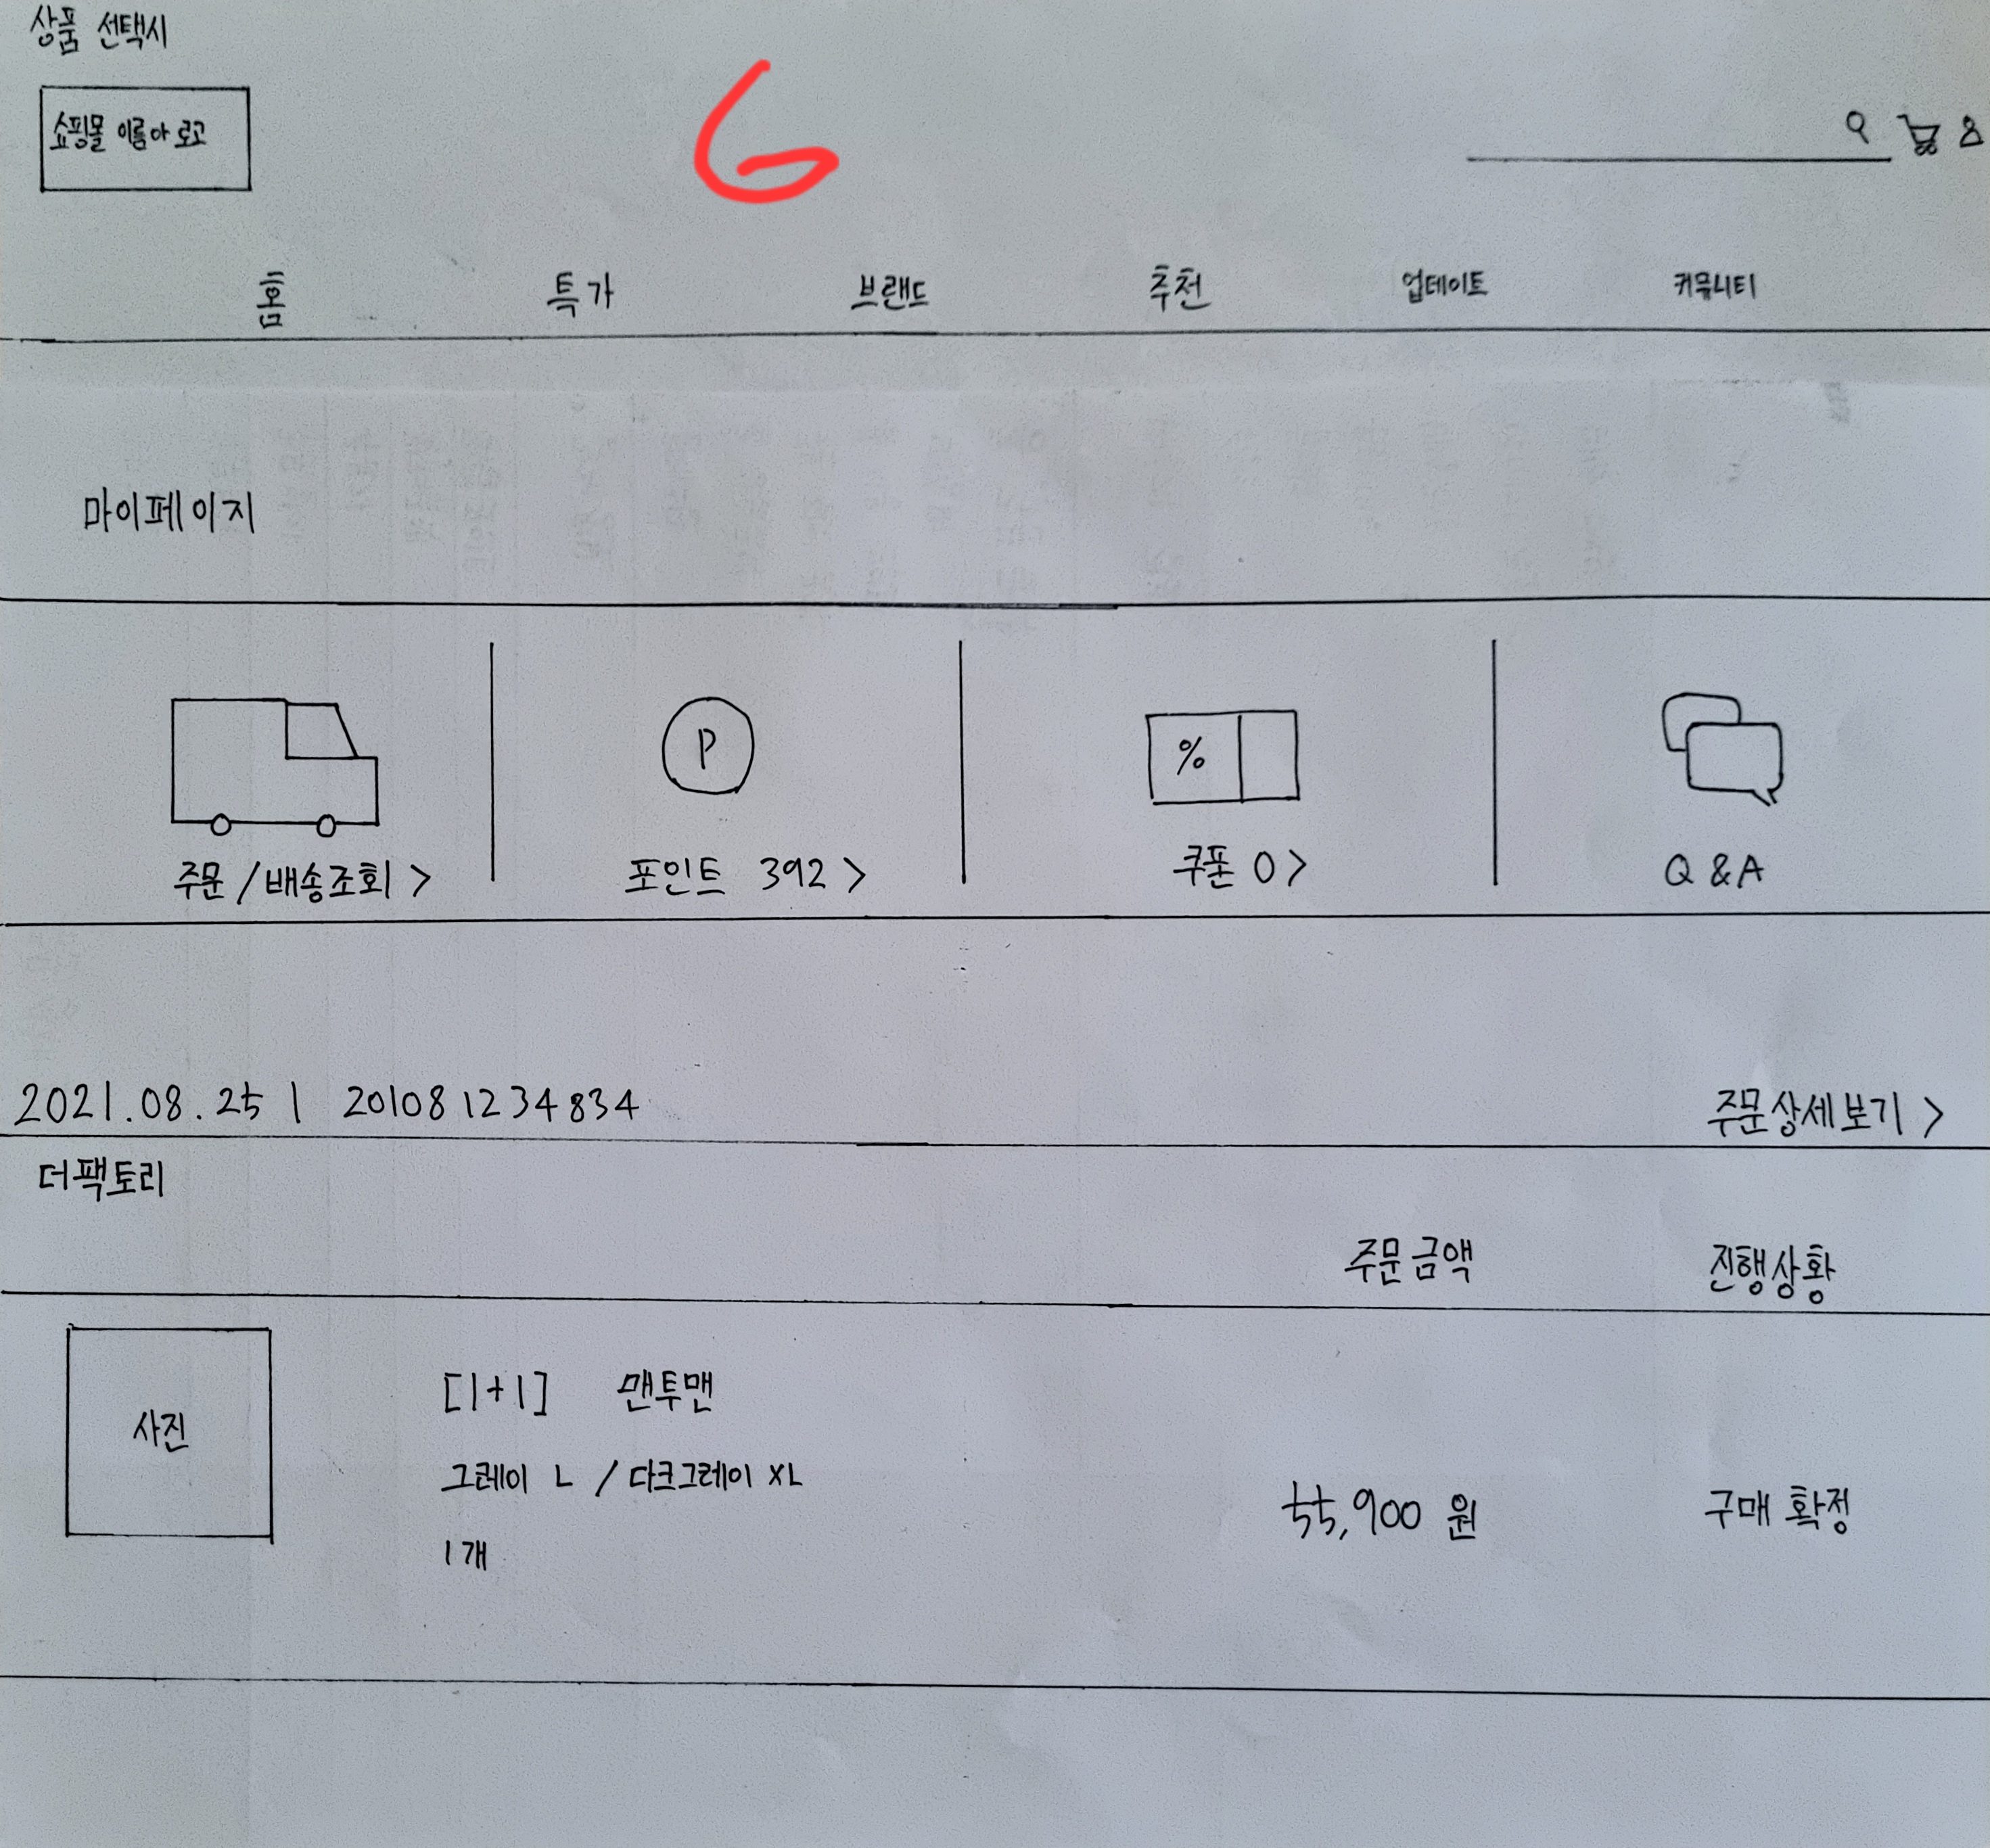 상품 선택시
6
쇼핑몰 이름아 로고
홈 특가 브랜드 추천 업데이트 커뮤니티
마이페이지
P
%
주문/배송조회 >
포인트 392 >
쿠폰 0 >
Q & A
2021.08.25 | 201081234834
주문상세보기 >
더팩토리
주문금액 진행상황
사진
[1+1] 맨투맨
그레이 L / 다크그레이 XL
1개
55,900 원
구매 확정